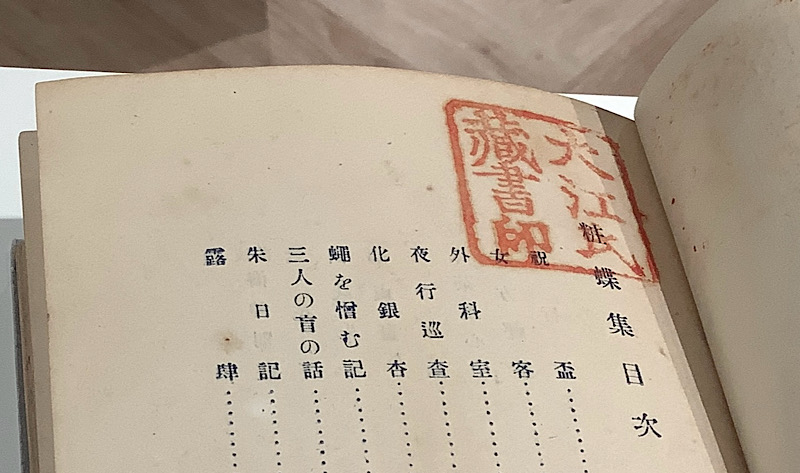 大江氏
藏書印
粧蝶集目次
祝盃
女客
外科室
夜行巡査
化銀杏
蠅を憎む記
三人の盲の話
朱日記
露肆